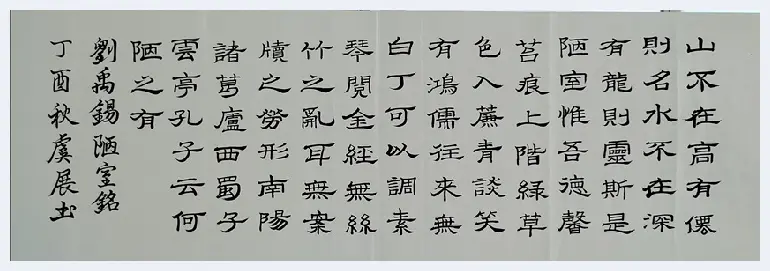 山不在高有僊
則名水不在深
有龍則靈斯是
陋室惟吾德馨
苔痕上階緑草
色入簾青談笑
有鴻儒往來無
白丁可以調素
琴閱金經無絲
竹之亂耳無案
牘之勞形南陽
諸葛廬西蜀子
雲亭孔子云何
陋之有
劉禹錫陋室銘
丁酉秋虞展书